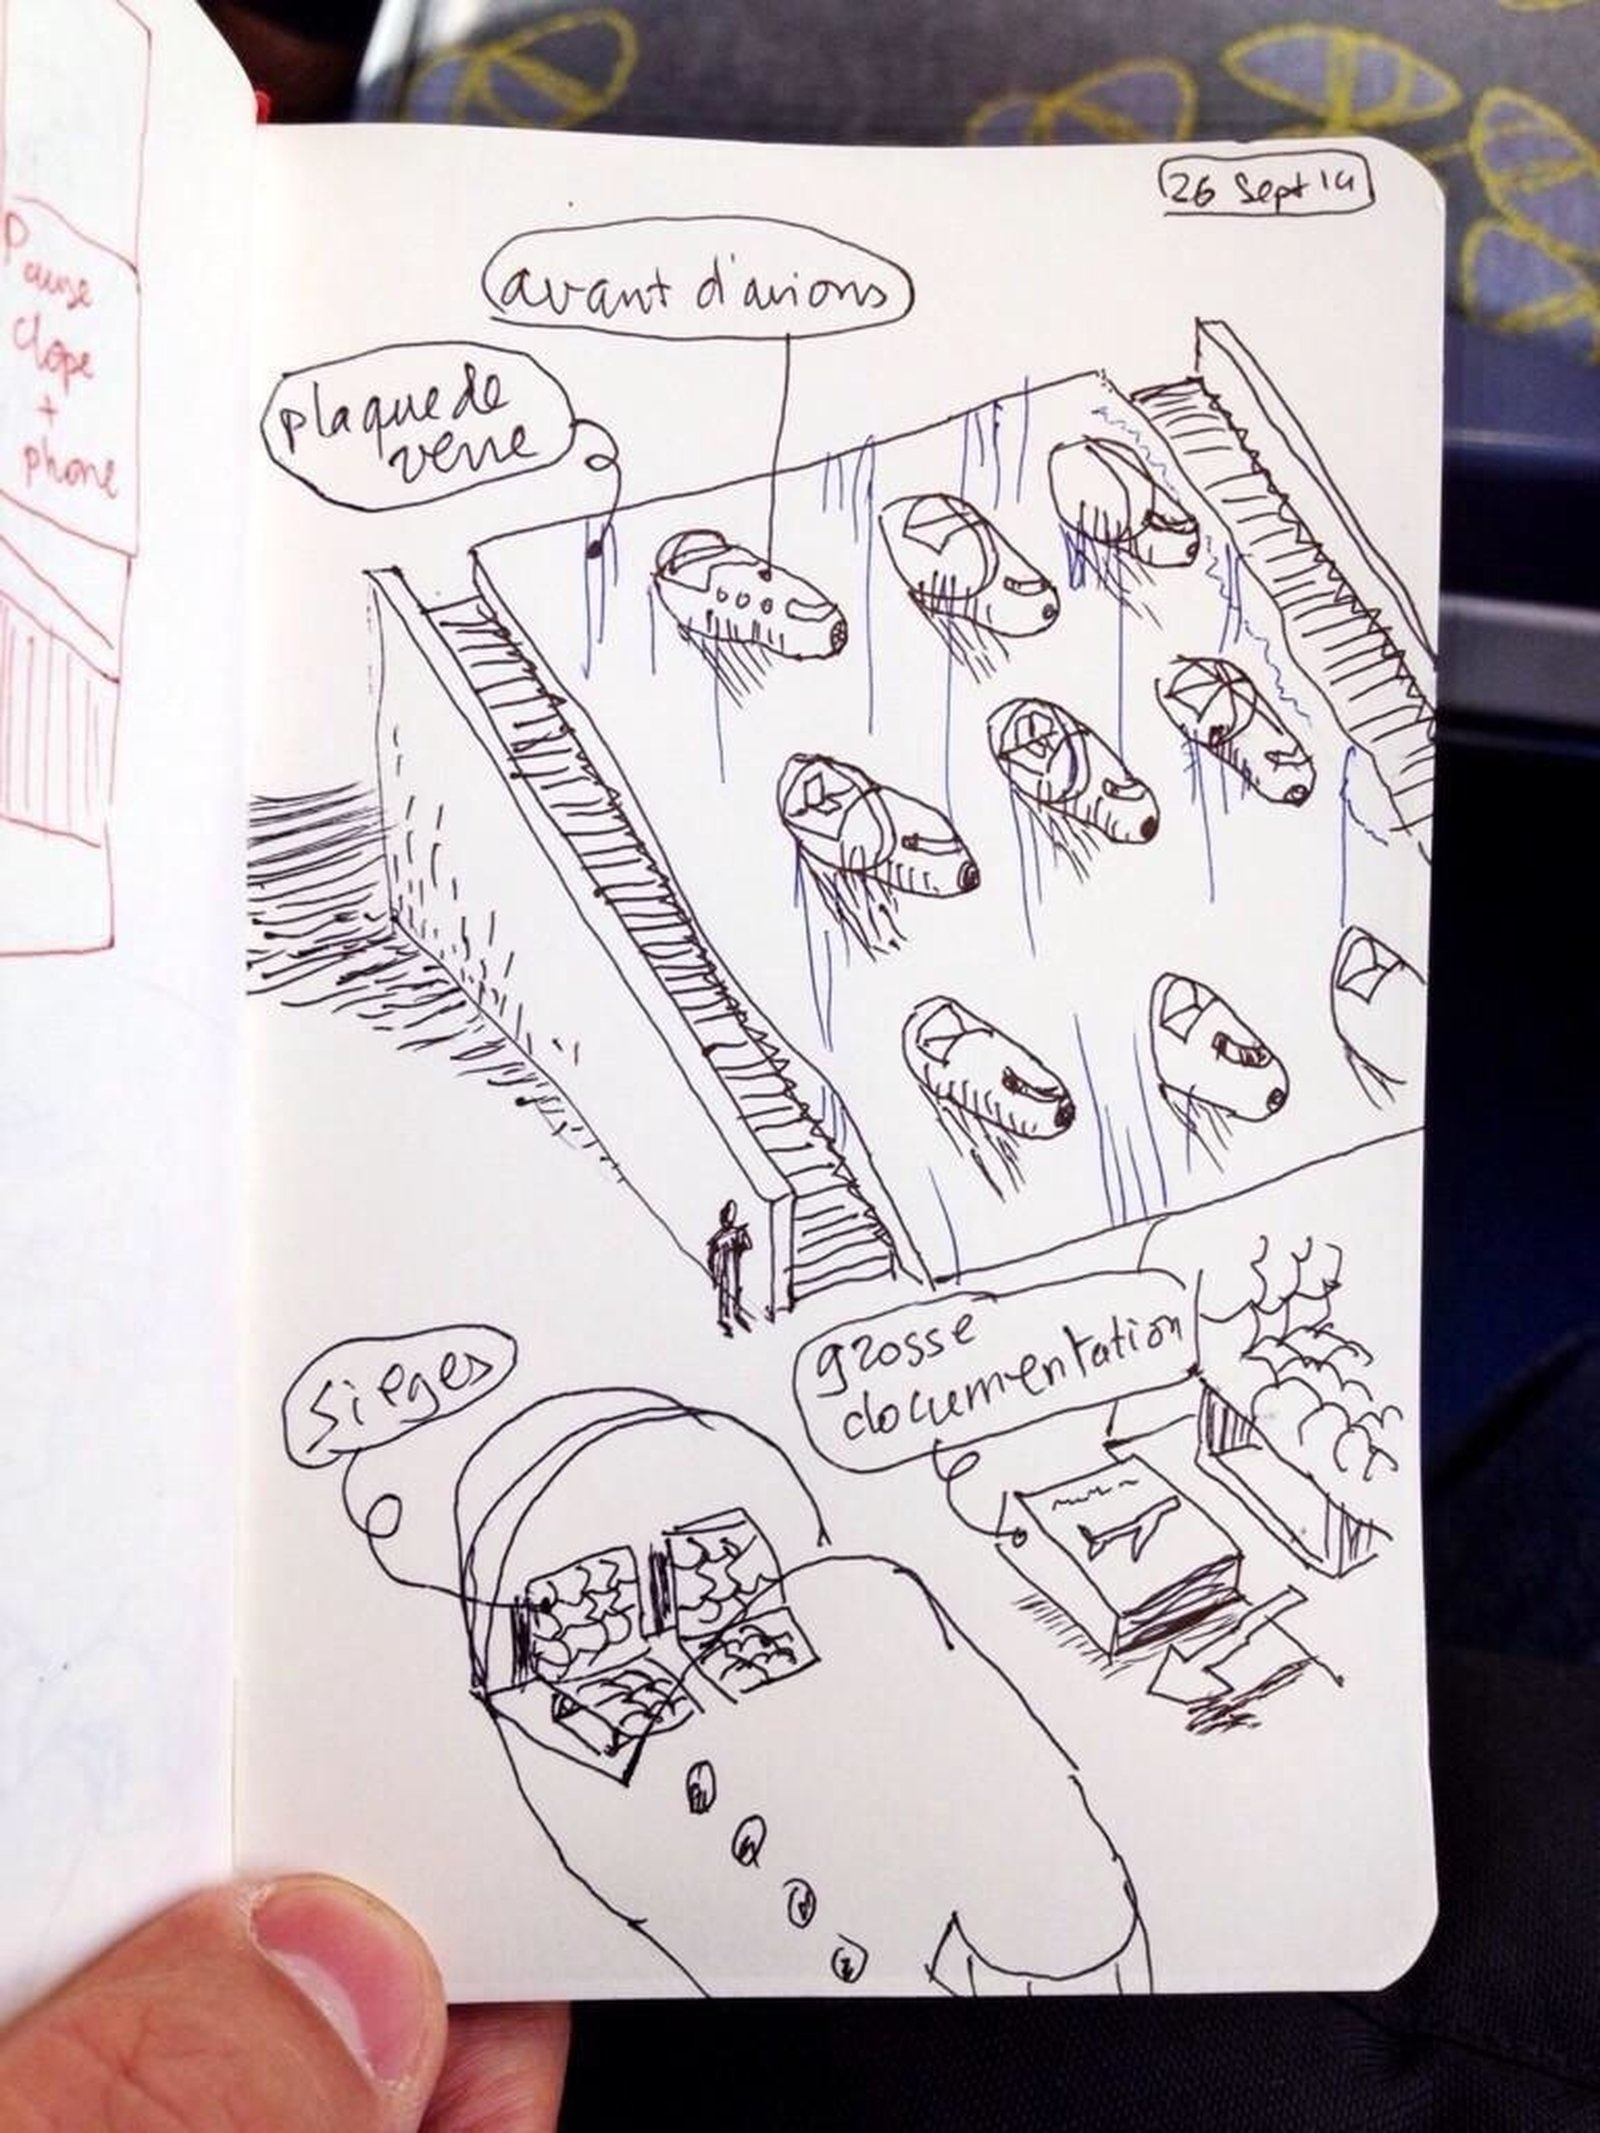 Pause
clope
+
phone
26 Sept 14
avant d'avions
plaque de
verre
sièges
grosse
documentation